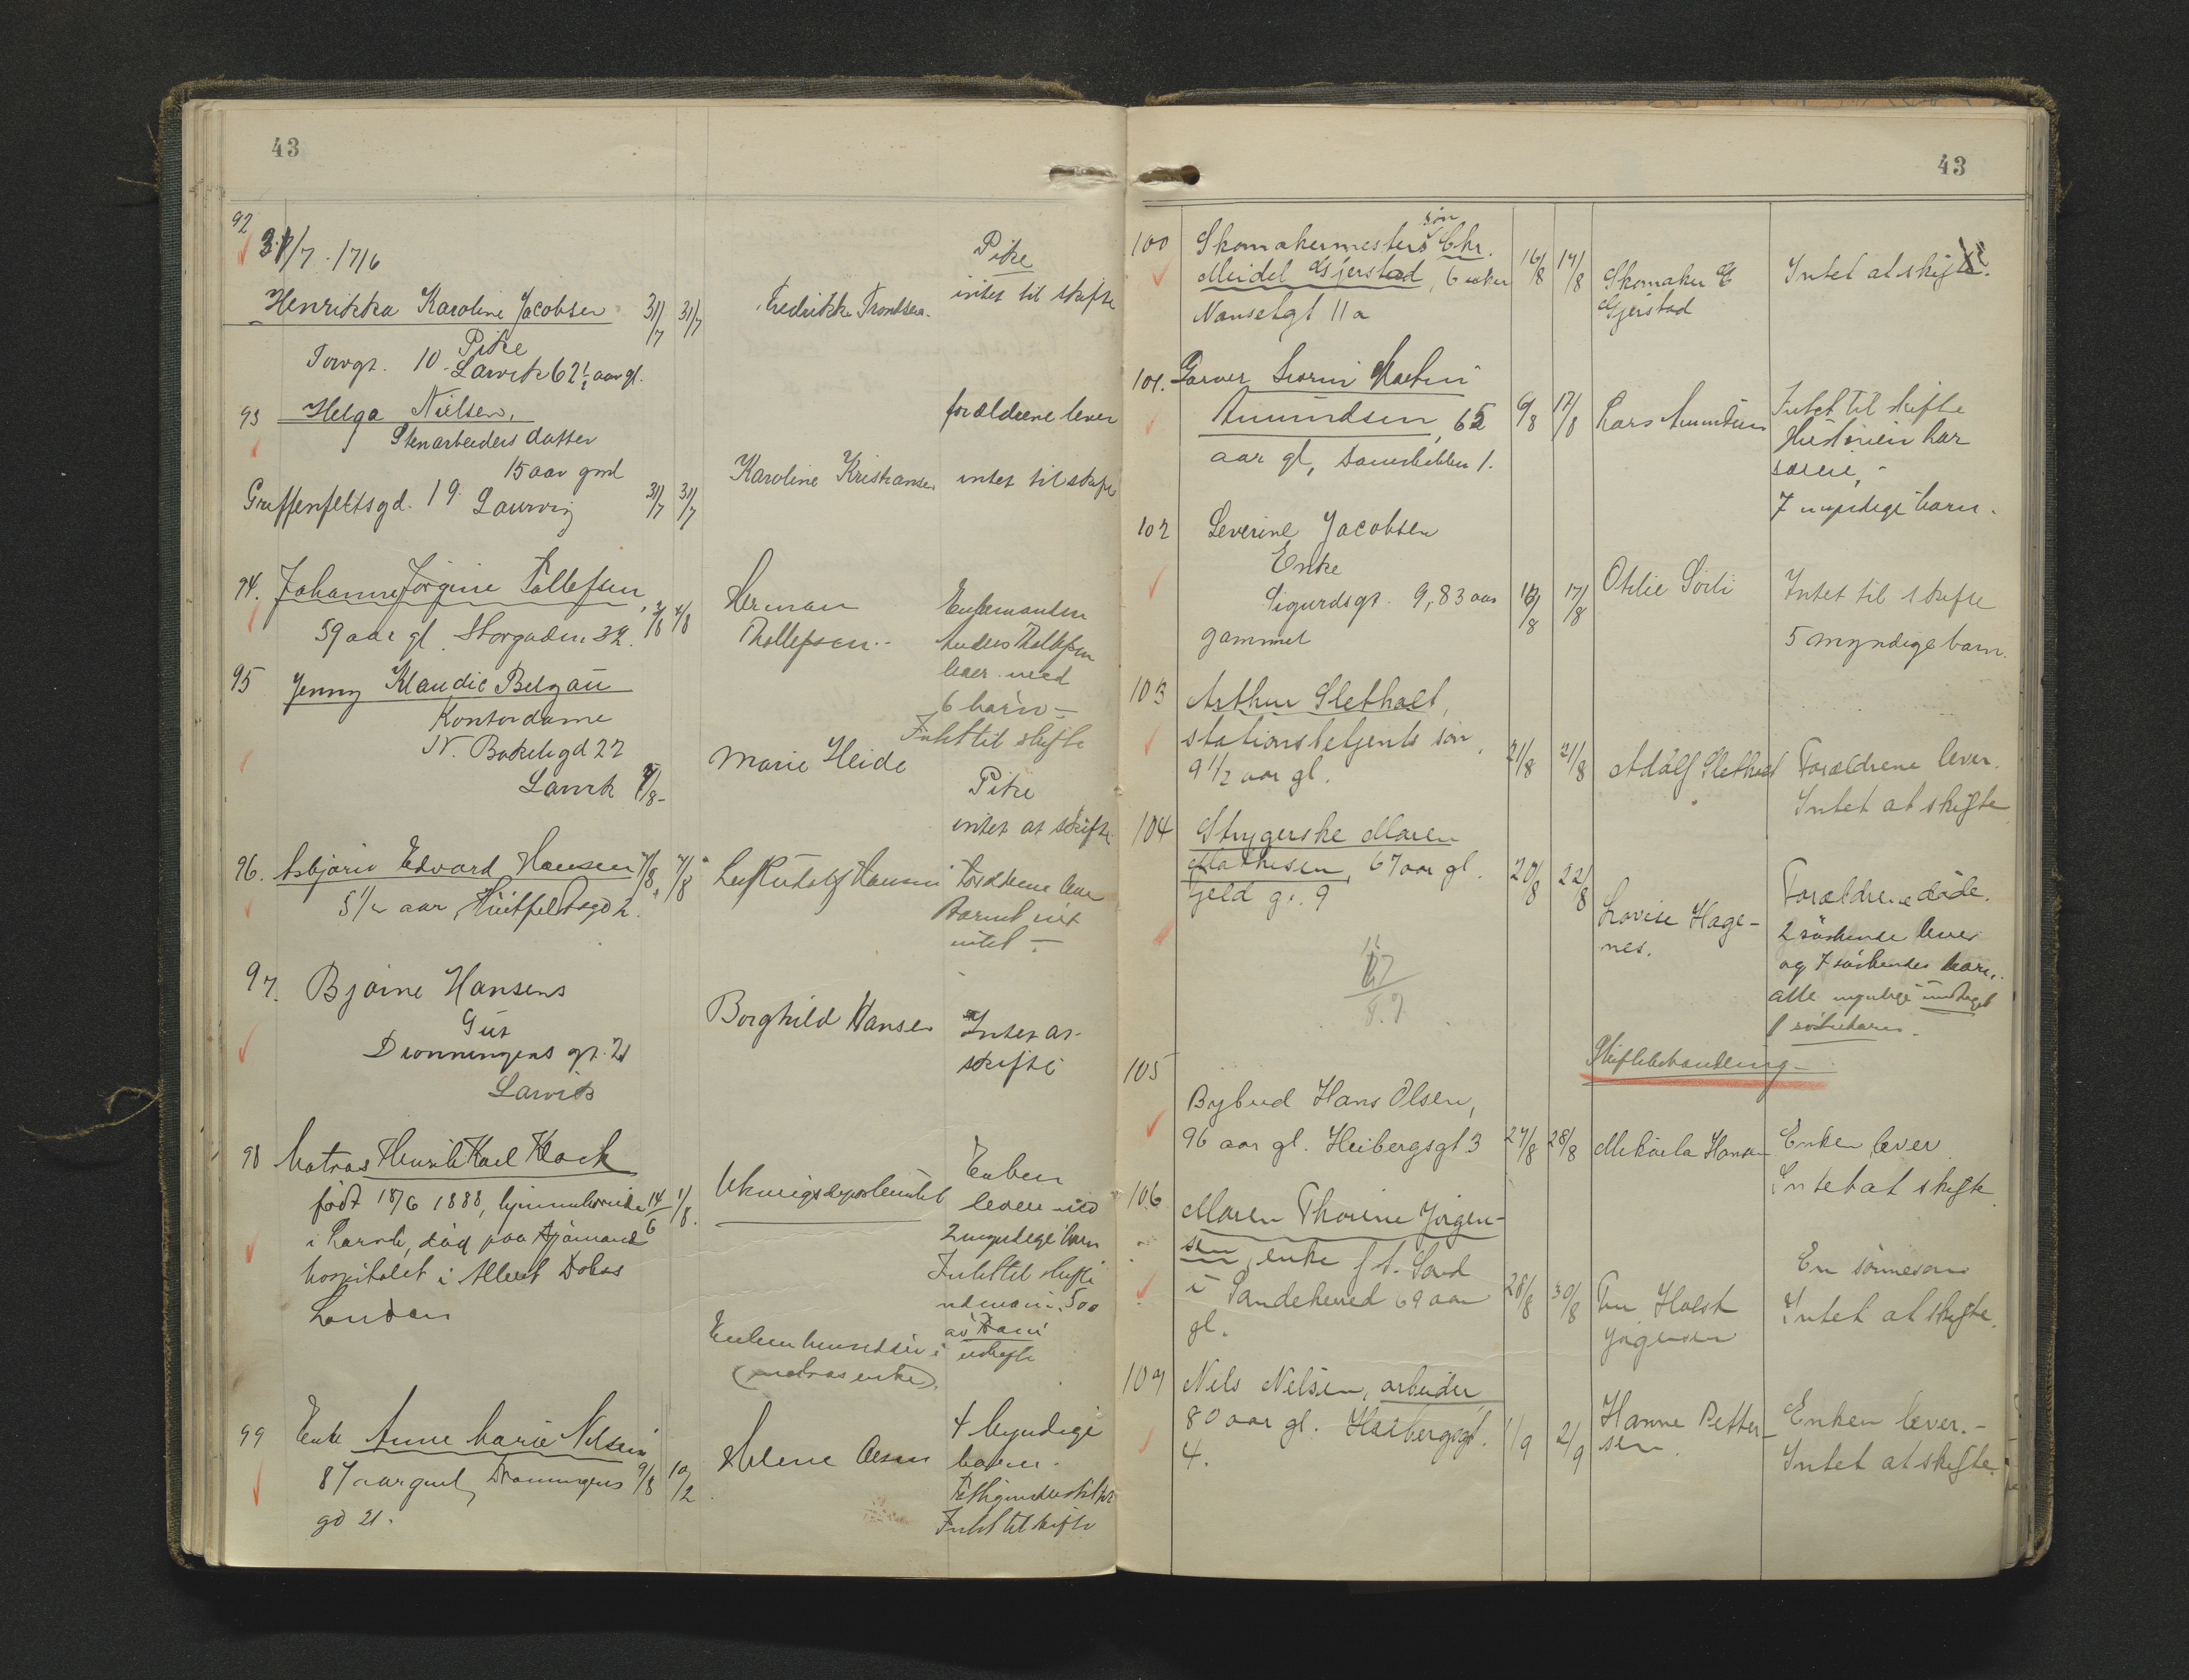 43
92
31/7 - 1716
Henrikka Karoline Jacobsen 31/7 31/7 Fredrikke Trondsen. Pike
intet til skifte
Pike
Torvgt. 10. Larvik 62 1/2 aar gl.
93 Helga Nielsen, forældrene lever
Stenarbeiders datter
15 aar gml
Griffenfeltsgd. 19. Laurvig 31/7 31/7 Karoline Kristiansen intet til skifte
94. Johanne Jørgine Tollefsen, 3/8 4/8 Herman Enkemanden
59 aar gl. Storgaden 32. Thollefsen. Anders Thollefsen
lever med
6 barn -
Intet til skifte
95 Jenny Klaudie Belgau
Kontordame
N. Bøkeligd 22 Marie Heide
Larvik 7/8 - Pike
intet at skifte
96. Asbjørn Edvard Hansen 7/8 7/8 Leif Rudolf Hansen Forældrene lever
5 1/2 aar, Huitfeldtsgd 2. Barnet eiet
intet -
97. Bjarne Hansens
Gut Borghild Hansen Intet at
Dronningens gt. 21 skifte
Larvik
98 Matros Henrik Karl Klock
født 18/6 1888, hjemmehørende 14/6 1/8. Enken
i Larvik, død paa Sjømands lever med
hospitalet i Albert Doks 2 umyndige barn
London Intet til skifte
500
Enken
(matros enke)
99 Enke Anne Marie Nilsen 4 Myndige
87 aar gml, Dronningens 9/8 10/2 Helene Olsen barn.
gd 21. Intet til skifte
43
100 Skomakermesters søn Chr.
Meidel Gjerstad, 6 uker 16/8 17/8 Skomaker G Intet at skifte.
Nansetgt 11a Gjerstad
101. Garver Severin Martin
Amundsen, 65 6/8 17/8 Lars Amundsen Intet til skifte
aar gl, 7 myndige barn.
102 Severine Jacobsen
Enke
Sigurdsgt. 9, 83 aar 16/8 17/8 Otilie Sørli Intet til skifte
gammel 5 myndige barn.
103 Arthur Sletholt,
stationsbetjents søn,
9 1/2 aar gl. 21/8 21/8 Adolf Sletholt Forældrene lever.
Intet at skifte
104 Strygerske Maren
Mathisen, 67 aar gl. 20/8 22/8 Forældrene døde.
Jeld gt. 9 Lovise Hage-
nes. 2 søskende lever
og 7 søskendes barn,
alle myndige undtagt
1 søsterbarn.
Skiftebehandling -
105
Bybud Hans Olsen,
96 aar gl. Heibergsgt 3 27/8 28/8 Mikaela Hansen Enken lever
Intet at skifte
106 Maren Thorine Jørgen-
sen, enke f. t. Sand
i Sandeherred 69 aar 28/8 30/8 Fru Holst En sønnesøn
gl. Jørgensen Intet at skifte.
107 Nils Nilsen, arbeider
80 aar gl. Heibergsgt. 1/9 2/9 Hanne Petter- Enken lever. -
4. sen. Intet at skifte